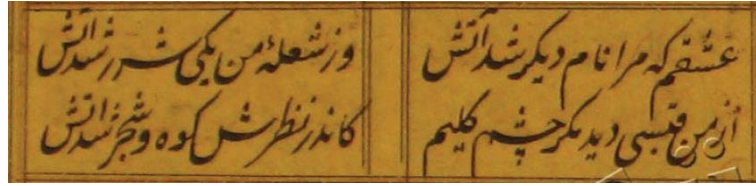 عشقم که مرا نام دیکر شد آتش
وز شعلهٔ من یکی شرر شد آتش
از من قبسی دید مکر چشم کلیم
کاندر نظرش کوه و شجر شد آتش